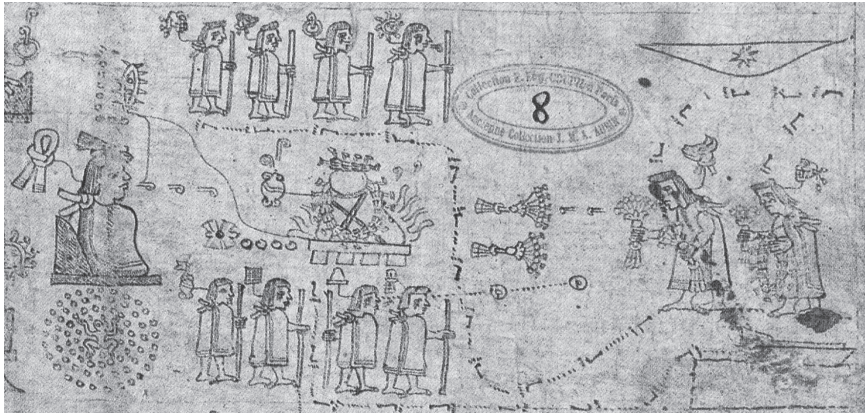 Collection E. Eug. GOUPIL à Paris
8
Ancienne Collection J. M. A. AUBIN